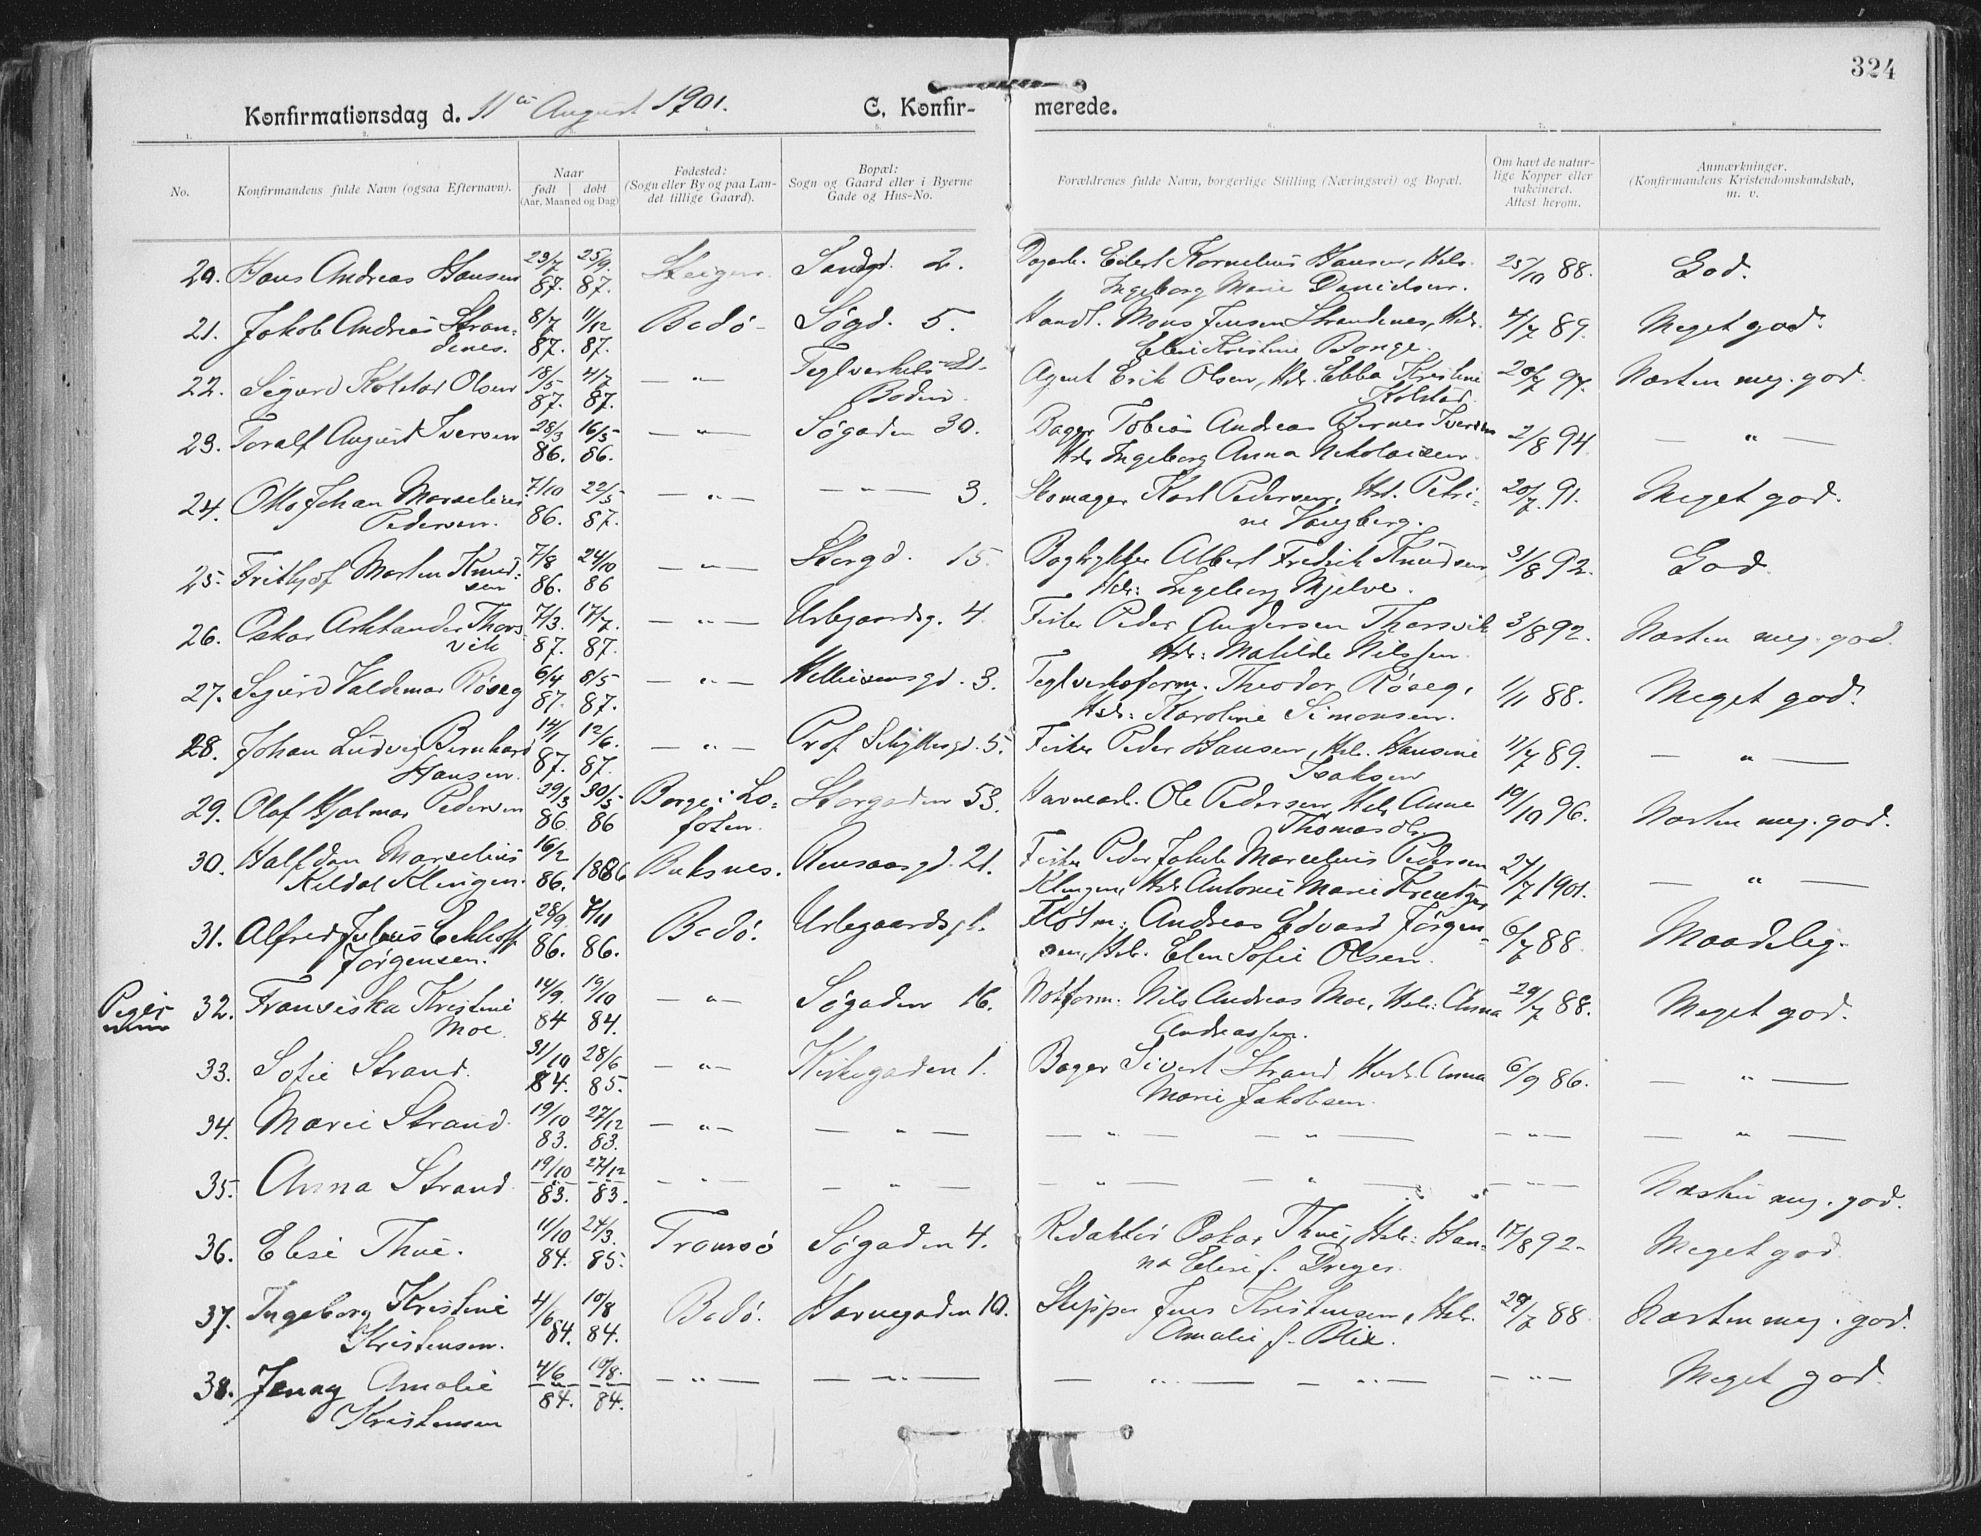 324
Konfirmationsdag d. 11te August 1901. C. Konfir- merede.
1. 2. 4. 5. 6. 7. 8.
No. Konfirmandens fulde Navn (ogsaa Efternavn). Naar født døbt (Aar, Maaned og Dag) Fødested: (Sogn eller By og paa Landet tillige Gaard). Bopæl: Sogn og Gaard eller i Byerne Gade og Hus-No. Forældrenes fulde Navn, borgerlige Stilling (Næringsvei) og Bopæl. Om havt de naturlige Kopper eller vakcineret. Attest herom. Anmærkninger. (Konfirmandens Kristendomskundskab, m. v.
20. Hans Andreas Hansen 23/7 87. 25/9 87. Steigen. Sandgd. 2. Dagarb. Edert Kornelius Hansen, Hds. Ingeborg Marie Danielsen. 25/10 88. God.
21. Jakob Andreas Strandenes. 8/7 87. 11/12 87. Bodø Søgd. 5. Handl. Mons Jensen Strandenes, Hds. Elise Kristine Bonge. 4/7 89. Meget god.
22. Sigurd Kolstad Olsen 18/5 87. 4/7 87. — " — Teglverket Bodin. Agent Erik Olsen, Hds. Ebba Kristine Kolstad. 20/7 97. Næsten meg. god.
23. Toralf August Iversen 28/3 86. 16/5 86. — " — Søgaden 30. Bager Tobias Andreas Bernes Iversen Hds Ingeborg Anna Nikolaisen. 2/8 94. — " —
24. Otto Johan Marselius Pedersen. 7/10 86. 22/5 87. — " — — " — 3. Skomager Karl Pedersen, Hst. Petrine Haugberg. 20/7 91. Meget god.
25. Frithjof Morten Knudsen 7/8 86. 24/10 86 — " — Storgd. 15. Bogtrykker Albert Fredrik Knudsen, Hds: Ingeborg Mjelve. 31/8 92. God
26. Oskar Arktander Thorsvik 7/3. 87. 17/7. 87. — " — Urbgaardsg. 4. Fisker Peder Andersen Thorsvik Hds: Matilde Nilssen. 3/8 92. Næsten meg. god
27. Sigurd Valdemar Røseg 6/4 87. 8/5 87. — " — Hellievensgd. 3. Teglverksform. Theodor Røseg, Hds: Karoline Simonsen. 1/11 88. Meget god.
28. Johan Ludvig Bernhard Hansen. 14/1 87. 12/6. 87. — " — Prof Schyttesgd. 5. Fisker Peder Hansen, Hds. Hansine Isaksen 11/7 89. — " —
29. Olaf Hjalmar Pedersen 29/3 86. 30/5 86 Borge i Lofoten. Storgaden 53. Havnearb. Ole Pedersen, Hds Anne Thomasdtr 19/10 96. Næsten meg. god.
30. Halfdan Marselius Kildal Klingen. 16/2 86. 1886 Buksnes. Rensaasgd. 21. Fisker Peder Jakob Marcelius Pedersen Klingen, Hds Antonie Marie Kreutzer 27/7 1901. — " —
31. Alfred Julius Eckhoff Jørgensen. 28/9 86. 7/11 86. Bodø. Urbgaardsg 1. Fløtm: Andreas Edvard Jørgensen, Hds. Elen Sofie Olsen. 6/7 88 Maadelig.
Piger 32. Fransiska Kristine Moe. 14/9. 84 19/10 84. — " — Søgaden 16. Notform. Nils Andreas Moe, Hds: Anna Andreassen. 29/7 88. Meget god.
33. Sofie Strand. 31/10 84. 28/6 85. — " — Kirkegaden 1. Bager Sivert Strand Hustr. Anna Marie Jakobsen. 6/9 86. — " —
34. Marie Strand. 19/10 83. 27/12 83. — " — — " — — " — — " — — " — — " —
35. Anna Strand. 19/10 83. 27/12 83. — " — — " — — " — — " — — " — Næsten meg. god.
36. Elise Thue. 11/10 84. 24/3. 85. Tromsø Søgaden 4. Redaktør Oskar Thue, Hds: Hanna Elise f. Dreyer. 17/8 92. Meget god
37. Ingeborg Kristine Kristensen. 4/6 84. 10/8 84. Bodø. Havnegaden 10. Skipper Jens Kristensen, Hds. Amalie f. Blix. 29/7 88 Næsten meg. god.
38. Jenny Amalie Kristensen 4/6 84. 10/8. 84. — " — — " — — " — — " — — " — Meget god.